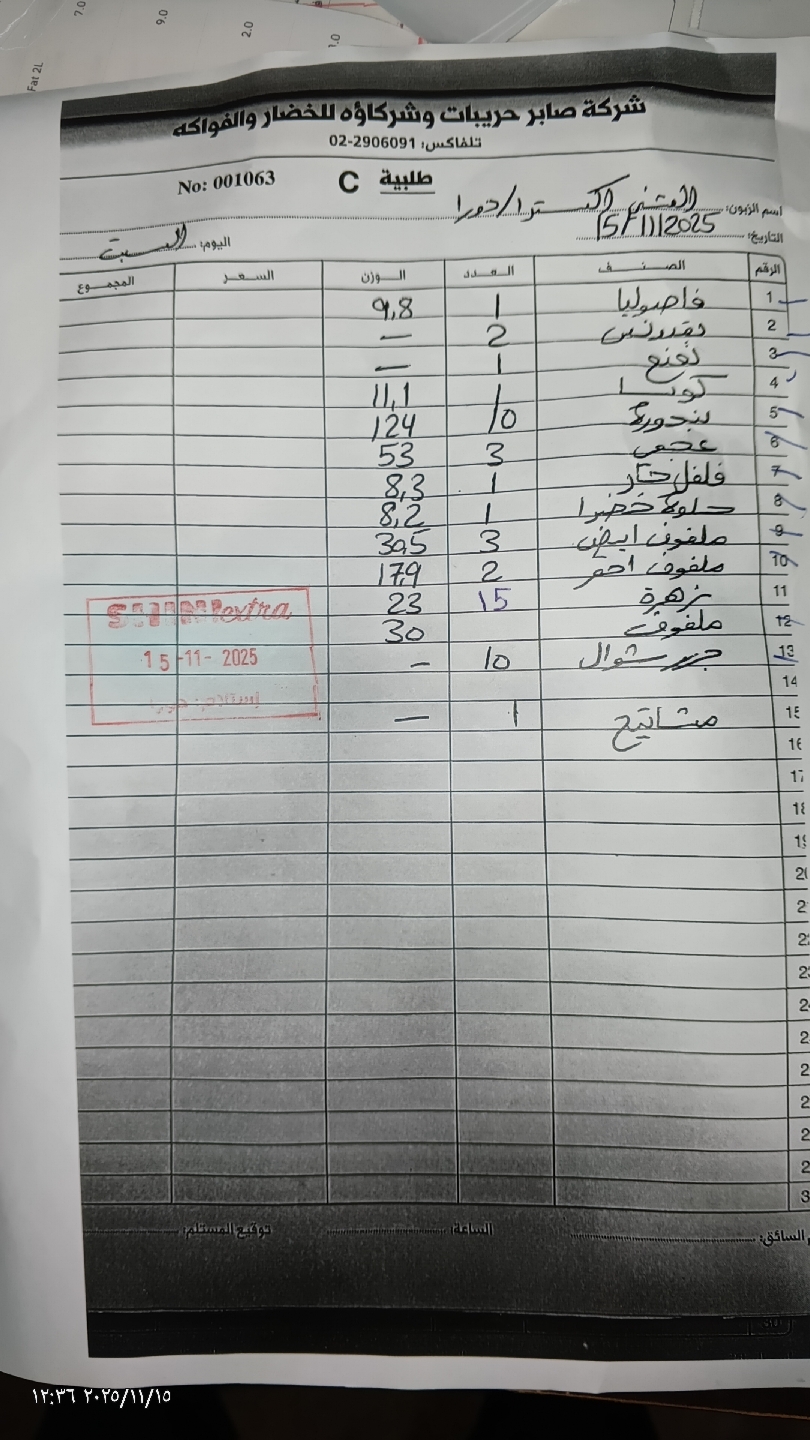 Fat 2L
7.0
9.0
2.0
1.0
شركة صابر حريبات وشركاؤه للخضار والفواكه
تلفاكس: 02-2906091
طلبية C No: 001063
اسم الزبون: اكسترا/دورا
التاريخ: 15/11/2025
اليوم: السبت
الرقم الصنف العدد الوزن السعر المجموع
1 فاصوليا 1 9,8
2 بقدونس 2 —
3 نعنع 1 —
4 كوسا 1 11,1
5 بندورة 10 124
6 3 53
7 فلفل حار 1 8,3
8 حلوة خضرا 1 8,2
9 ملفوف ابيض 3 30,5
10 ملفوف احمر 2 17,9
11 زهرة 15 23
12 ملفوف 30
13 شوال 10 -
14
15 1 —
16
17
18
19
20
2
2
2
2
2
2
2
2
2
3
extra
15-11-2025
السائق: الساعة: توقيع المستلم:
١٢:٣٦ ٢٠٢٥/١١/١٥